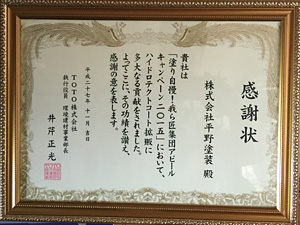 感謝状
株式会社平野塗装 殿
貴社は
「塗り自慢!我ら匠集団アピール
キャンペーン二〇一五」において、
ハイドロテクトコート拡販に
多大なる貢献をされました。
よってここに、その功績を讃え、
感謝の意を表します。
平成二十七年十一月吉日
TOTO株式会社
執行役員 環境建材事業部長
井芹正光